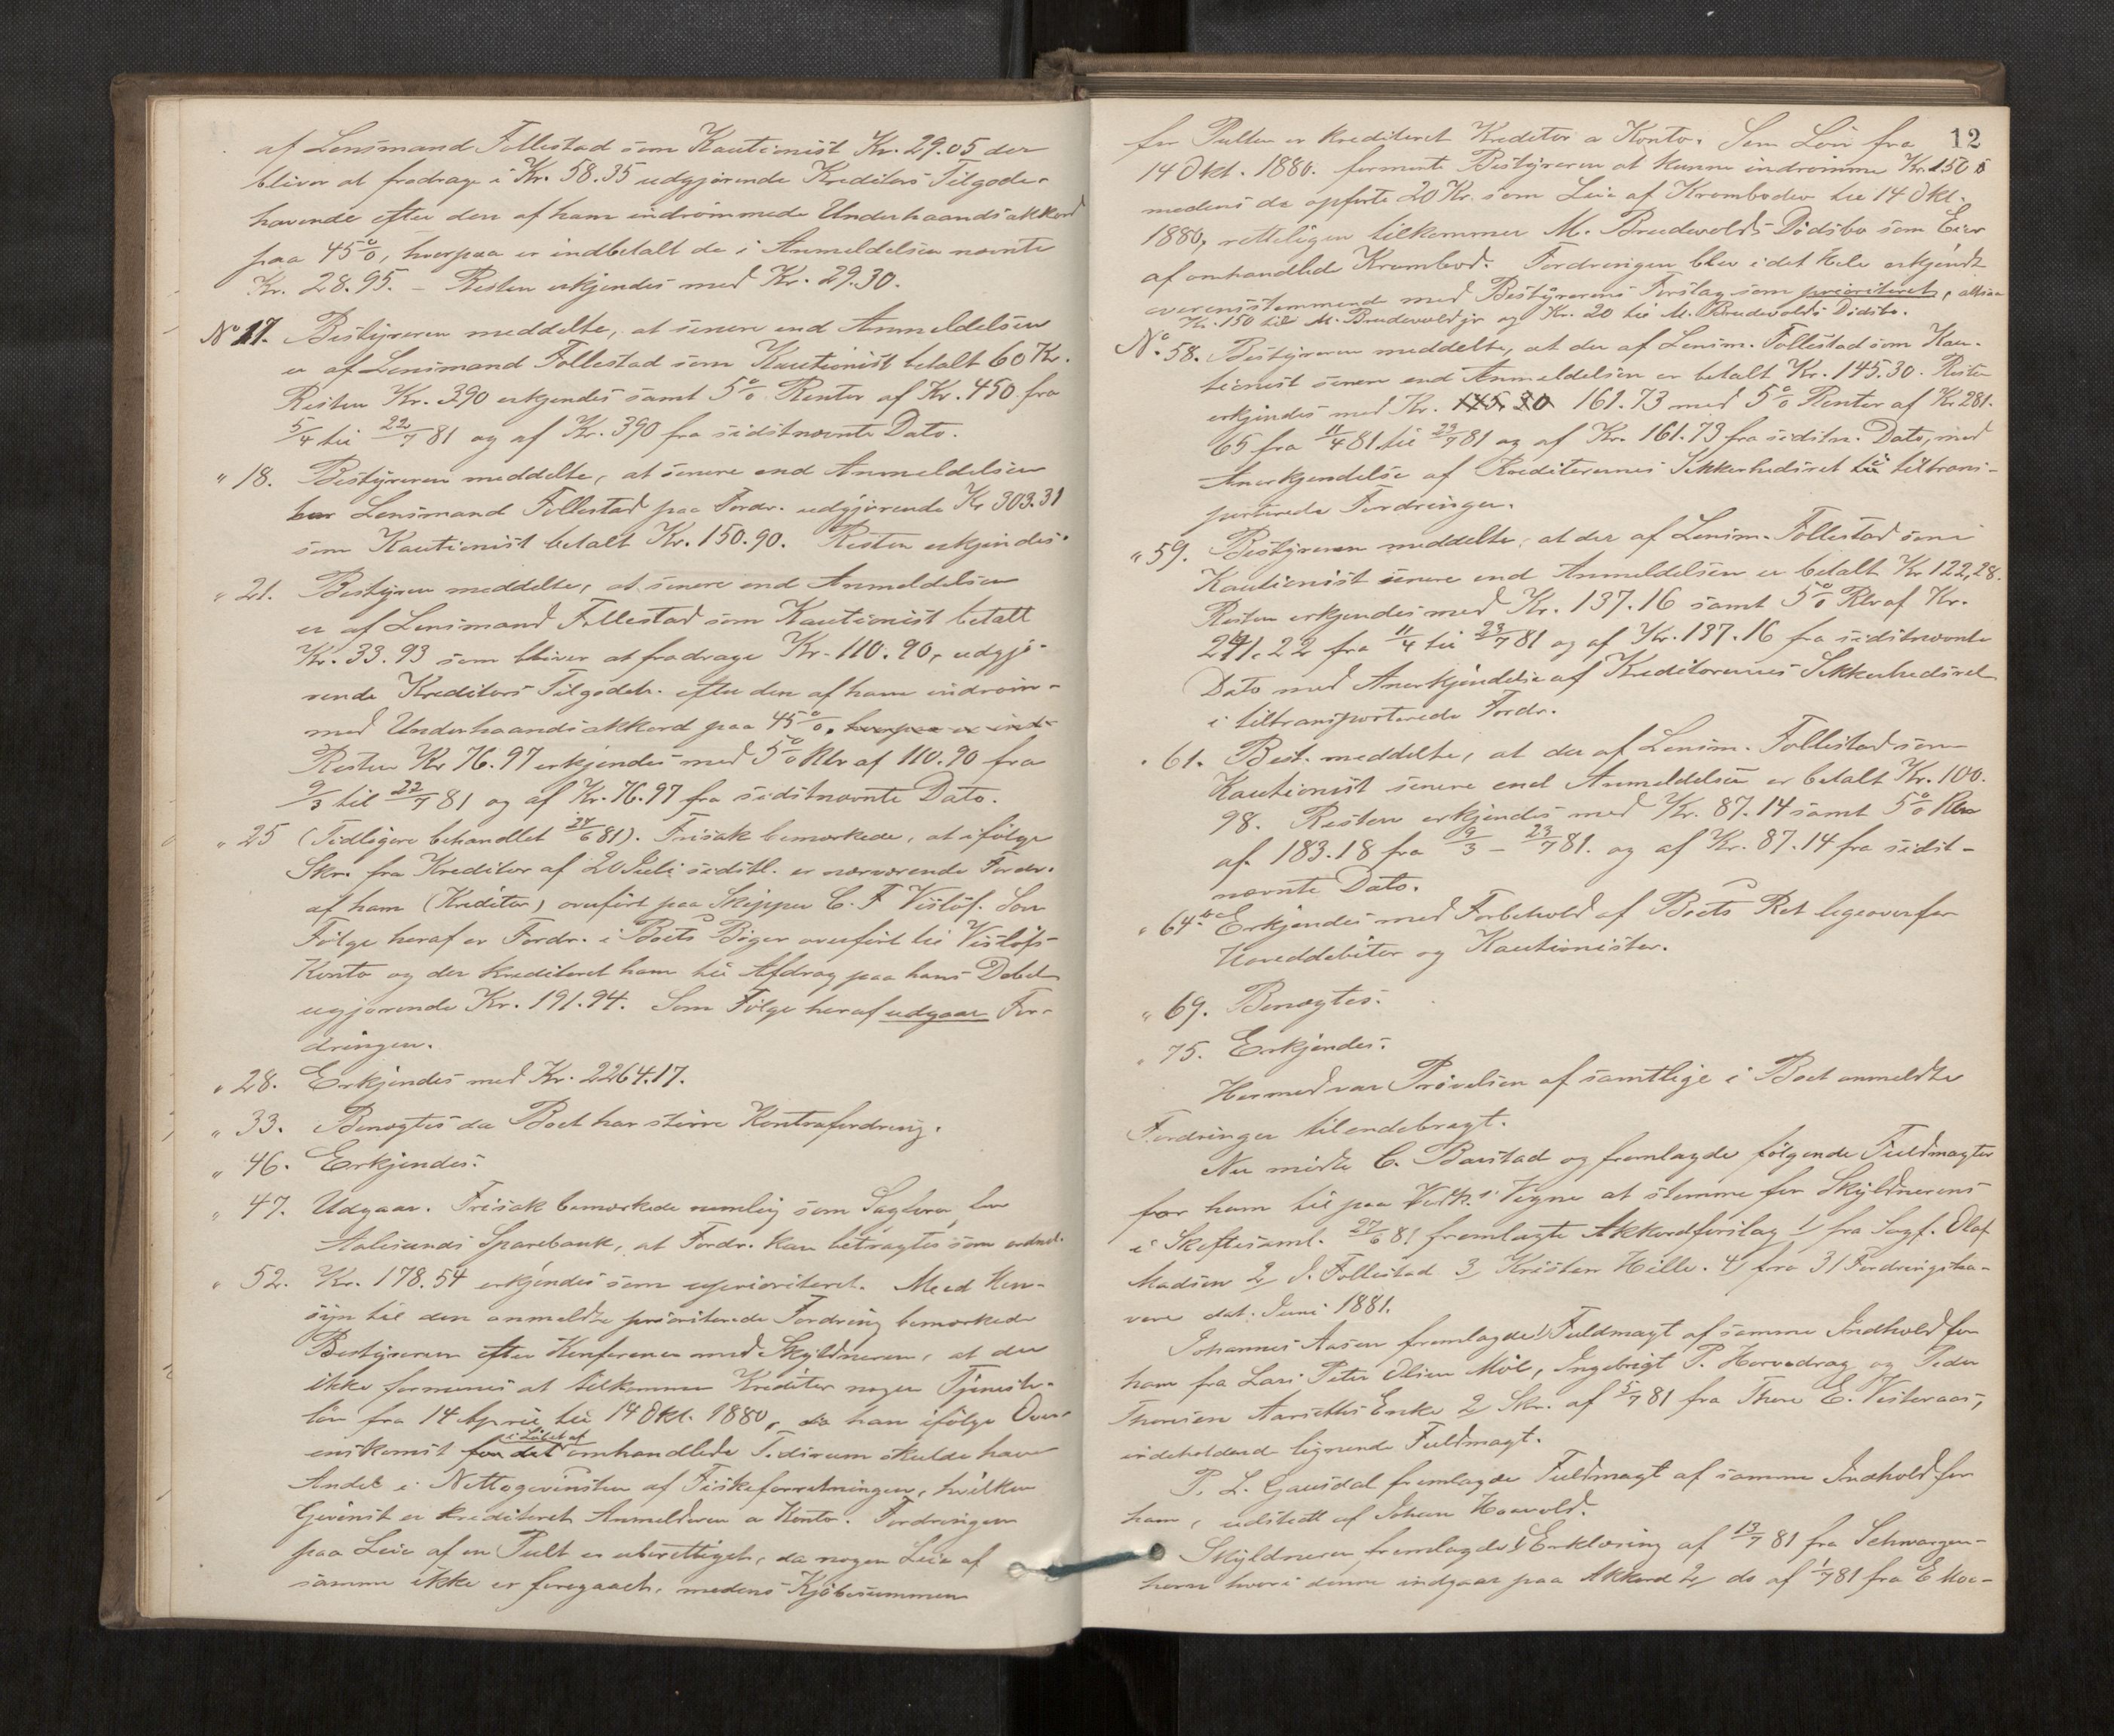 af Lensmand Follestad som Kautionist Kr. 29.05 der
bliver at fradrage i Kr. 58.35 udgjørende Kreditors Tilgode-
havende efter den af ham indrømmede Underhaandsakkord
paa 45%, hvorpaa er indbetalt de i Anmeldelsen nævnte
Kr. 28.95. – Resten erkjendes med Kr. 29.30.
No 17. Bestyreren meddelte, at senere end Anmeldelsen
er af Lensmand Follestad som Kautionist betalt 60 Kr.
Resten Kr. 390 erkjendes samt 5% Renter af Kr. 450 fra
5/4 til 22/7 81 og af Kr. 390 fra sidstnævnte Dato.
" 18. Bestyreren meddelte, at senere end Anmeldelsen
har Lensmand Follestad paa Fordr. udgjørende Kr 303.31
som Kautionist betalt Kr. 150.90. Resten erkjendes.
" 21. Bestyren meddelte, at senere end Anmeldelsen
er af Lensmand Follestad som Kautionist betalt
Kr. 33.93 som bliver at fradrage Kr. 110.90, udgjø-
rende Kreditors Tilgodeh. efter den af ham indrøm-
med Underhaandsakkord paa 45%, hvorpaa er ind-
Resten Kr 76.97 erkjendes med 5% Rtr af 110.90 fra
9/3 til 22/7 81 og af Kr. 76.97 fra sidstnævnte Dato.
" 25 (Tidligere behandlet 27/6 81). Frisak bemærkede, at ifølge
Skr. fra Kreditor af 20 Juli sidstl. er nærværende Fordr.
af ham (Kreditor) overført paa Skipper C. F Visløf. Som
Følge heraf er Fordr. i Boets Bøger overført til Visløfs
Konto og der krediteret ham til Afdrag paa hans Debet
ugjørende Kr. 191.94. Som Følge heraf udgaar For-
dringen.
" 28. Erkjendes med Kr. 2264.17.
" 33. Benægtes da Boet har større Kontrafordring.
" 46. Erkjendes.
" 47. Udgaar. Frisak bemærkede nemlig som Sagfører for
Aalesunds Sparebank, at Fordr. kan betragtes som
" 52. Kr. 178.54 erkjendes som uprioriteret. Med Hen-
syn til den anmeldte prioriterede Fordring bemærkede
Bestyreren efter Konference med Skyldneren, at der
ikke formenes at tilkomme Kreditor nogen Tjeneste-
løn fra 14 April til 14 Okt. 1880, da han ifølge Over-
enskomst for det i Løbet af omhandlede Tidsrum skulde have
Andel i Nettogevinsten af Fiskeforretningen, hvilken
Gevinst er krediteret Anmelderen a Konto. Fordringen
paa Leie af en Pult er uberettiget, da nogen Leie af
samme ikke er foregaaet, medens Kjøbesummen
12
for Pulten er krediteret Kreditor a Konto. Som Løn fra
14 Okt. 1880. formente Bestyreren at kunne indrømme Kr. 150
medens de opførte 20 Kr. som Leie af Kramboden til 14 Okt.
1880, retteligen tilkommer M. Brudevolds Dødsbo som Eier
af omhandlede Krambod. Fordringen blev i det Hele erkjendt
overensstemmende med Bestyrerens Forslag som prioriteret, altsaa
Kr. 150 til M. Brudevold jr og Kr. 20 til M. Brudevolds Dødsbo.
No. 58. Bestyreren meddelte, at der af Lensm. Follestad som Kau-
tionist senere end Anmeldelsen er betalt Kr. 145.30. Resten
erkjendes med Kr. 145.30 161.73 med 5% Renter af Kr 281.
65 fra 11/4 81 til 23/7 81 og af Kr. 161.73 fra sidstn. Dato, med
Anerkjendelse af Kreditorernes Sikkerhedsret til tiltrans-
porterede Fordringer.
" 59. Bestyreren meddelte, at der af Lensm. Follestad som
Kautionist senere end Anmeldelsen er betalt Kr 122,28.
Resten erkjendes med Kr. 137.16 samt 5% Rtr af Kr.
241.22 fra 11/4 til 23/7 81 og af Kr. 137.16 fra sidstnævnte
Dato med Anerkjendelse af Kreditorernes Sikkerhedsret
i tiltransporterede Fordr.
" 61. Best. meddelte, at der af Lensm. Follestad som
Kautionist senere end Anmeldelsen er betalt Kr. 100.
98. Resten erkjendes med Kr. 87.14 samt 5% Rtr
af 183.18 fra 9/3 – 23/7 81. og af Kr. 87.14 fra sidst-
nævnte Dato.
" 64. Erkjendes med Forbehold af Boets Ret ligeoverfor
Hoveddebitor og Kautionister.
" 69. Benægtes.
" 75. Erkjendes.
Hermed var Prøvelsen af samtlige i Boet anmeldte
Fordringer tilendebragt.
Nu mødte C. Barstad og fremlagde følgende Fuldmagter
for ham til paa Vedk.s Vegne at stemme for Skyldnerens
i Skiftesaml. 27/6 81 fremlagte Akkordforslag 1/ fra Sagf. Olaf
Madsen 2/ J. Follestad 3/ Kristen Hille. 4/ fra 31 Fordringsha-
vere dat. Juni 1881.
Johannes Aasen fremlagde 1/ Fuldmagt af samme Indhold for
ham fra Lars Peter Olsen Møl, Ingebrigt P. Horvedrag og Peder
Thoresen Aarseths Enke 2/ Skr. af 5/7 81 fra Thore E. Vesteraas,
indeholdend lignende Fuldmagt.
P. L. Gausdal fremlagde Fuldmagt af samme Indhold for
ham, udstedt af Johan Hoavold.
Skyldneren fremlagde 1/ Erklæring af 13/7 81 fra Schwargen-
horn hvori denne indgaar paa Akkord 2/ do af 1/7 81 fra E Moe-